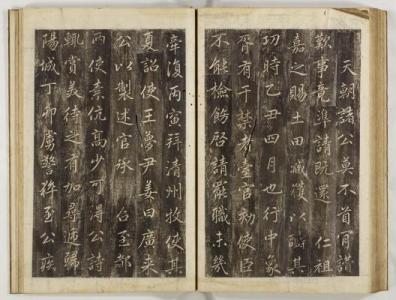 天朝諸公莫不首肯讚
歎事竟準請既還 仁祖
嘉之賜土田臧獲以酬其
功時乙丑四月也行中象
胥有干禁者臺官劾使臣
不能檢飭啓請罷職未幾
宰復丙寅拜清州牧使其
夏詔使王夢尹姜曰廣來
公以製述官承 召至都
兩使素伉高少可得公詩
輒賞美待之有加尋遞歸
陽城丁卯虜警猝至公疾